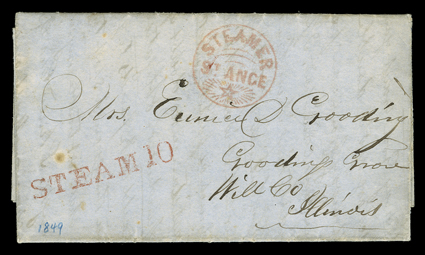 STEAMER
ST ANGE
Mrs. Eunice D Gooding
Gooding Grove
Will Co
Illinois
STEAM 10
1849